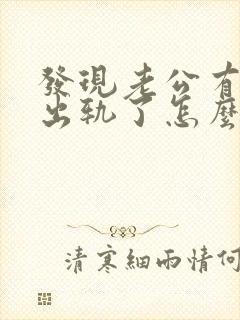 發現老公有
出軌了怎麼
清寒細雨情何